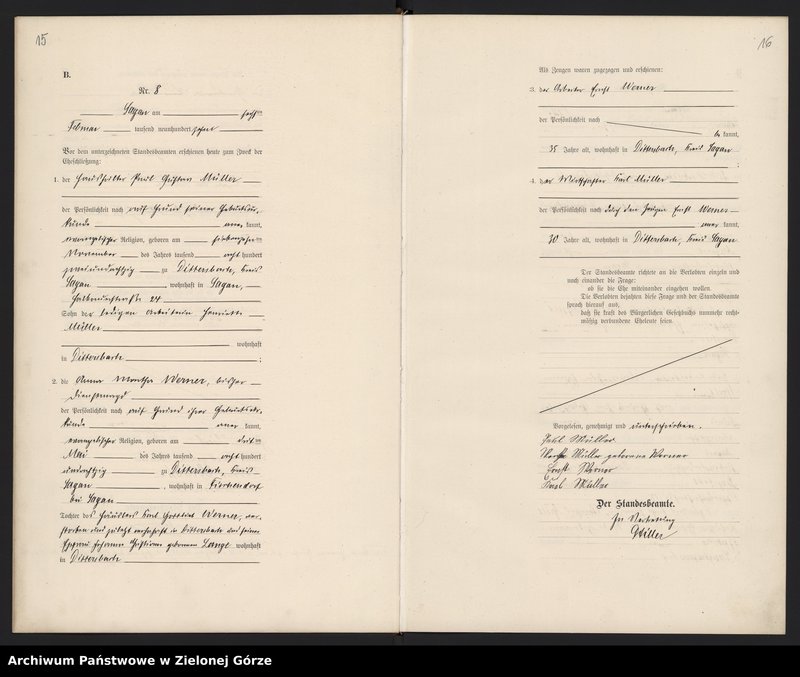 15
B.
Nr. 8
Sagan am
Februar tausend neunhundert zehn
Vor dem unterzeichneten Standesbeamten erschienen heute zum Zweck der
Eheschließung:
1. der Haushälter Paul Gustav Müller
der Persönlichkeit nach auf Grund seiner Geburtsur-
kunde kannt,
evangelischer Religion, geboren am siebenzehnten
November des Jahres tausend acht hundert
zweiundachtzig zu Dittersbach, Kreis
Sagan, wohnhaft in Sagan,
24
Sohn der ledigen Arbeiterin Henriette
Müller
wohnhaft
in Dittersbach;
2. die Anna Martha Werner, bisher
Dienstmagd
der Persönlichkeit nach auf Grund ihrer Geburtsur-
kunde kannt,
evangelischer Religion, geboren am
Mai des Jahres tausend acht hundert
undachtzig zu Dittersbach, Kreis
Sagan, wohnhaft in
bei Sagan
Tochter des Häuslers Karl Werner, ver-
storben und zuletzt wohnhaft in Dittersbach und seiner
Ehefrau Johanne Christiane geborenen Lange wohnhaft
in Dittersbach
16
Als Zeugen waren zugezogen und erschienen:
3. der Arbeiter Ernst Werner
der Persönlichkeit nach
be kannt,
35 Jahre alt, wohnhaft in Dittersbach, Kreis Sagan;
4. der Karl Müller
der Persönlichkeit nach durch den Zeugen Ernst Werner
kannt,
30 Jahre alt, wohnhaft in Dittersbach, Kreis Sagan
Der Standesbeamte richtete an die Verlobten einzeln und
nach einander die Frage:
ob sie die Ehe miteinander eingehen wollen.
Die Verlobten bejahten diese Frage und der Standesbeamte
sprach hierauf aus,
daß sie kraft des Bürgerlichen Gesetzbuchs nunmehr recht-
mäßig verbundene Eheleute seien.
Vorgelesen, genehmigt und unterschrieben.
Paul Müller
Martha Müller geborene Werner
Ernst Werner
Karl Müller
Der Standesbeamte.
In Vertretung
Archiwum Państwowe w Zielonej Górze